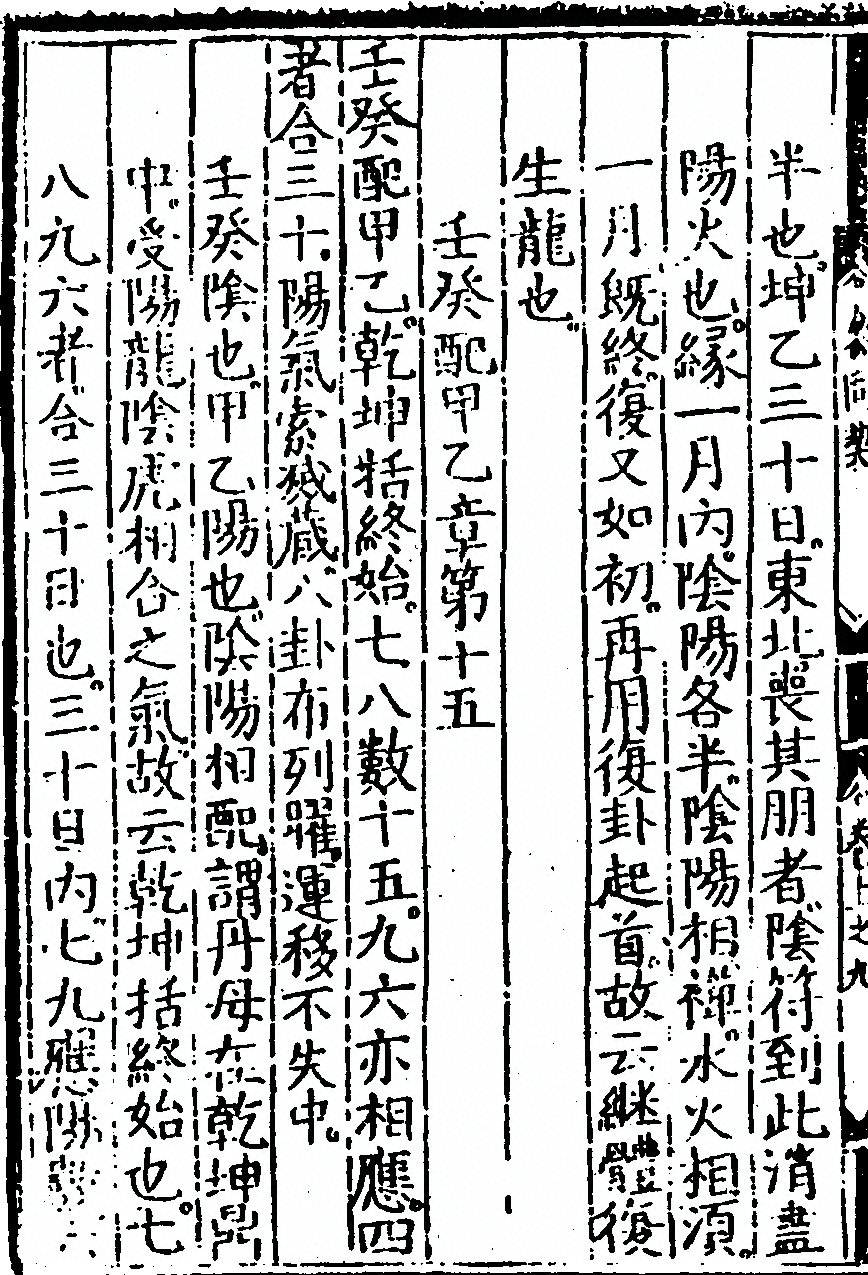 半也坤乙三十日東北喪其朋者陰符到此消盡
陽火也縁一月內陰陽各半陰陽相禪水火相須
一月旣終復又如初再用復卦起首故云繼體復
生龍也
壬癸配甲乙章第十五
壬癸配甲乙乾坤括終始七八數十五九六亦相應四
者合三十陽氣索滅藏八卦布列曜運移不失中
壬癸陰也甲乙陽也陰陽相配謂丹母在乾坤鼎
中受陽龍陰虎相合之氣故云乾坤括終始也七
八九六者合三十日也三十日內七九應陽